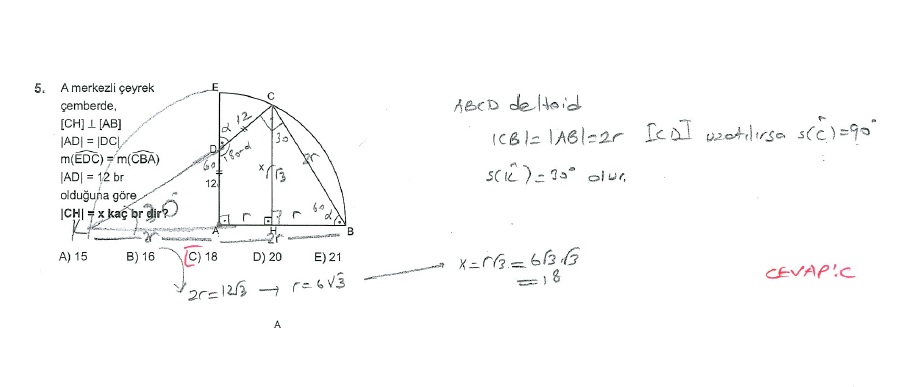 5. A merkezli çeyrek
çemberde,
[CH] ⊥ [AB]
|AD| = |DC|
m(EDC) = m(CBA)
|AD| = 12 br
olduğuna göre
|CH| = x kaç br dir?
A) 15 B) 16 C) 18 D) 20 E) 21
E
C
D
A
H
B
K
α
12
180-α
60
12
30
2r
x
r√3
r
r
60
α
30°
2r
2r
2r=12√3 → r=6√3
ABCD deltoid
|CB|=|AB|=2r [CD] uzatılırsa s(Ĉ)=90°
s(K̂)=30° olur.
x=r√3=6√3.√3
=18
CEVAP:C
A